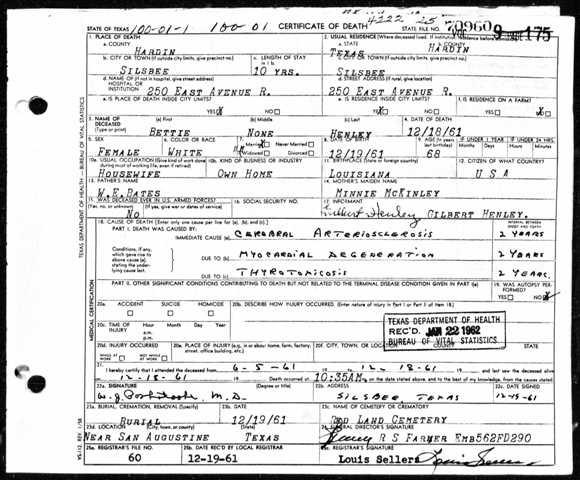 4222 25 70960 9 175
STATE OF TEXAS 100-01-1 100 01 CERTIFICATE OF DEATH
1. PLACE OF DEATH 2. USUAL RESIDENCE (Where deceased lived. If institution: residence before admission)
a. COUNTY HARDIN a. STATE TEXAS b. COUNTY HARDIN
b. CITY OR TOWN (If outside city limits, give precinct no.) c. LENGTH OF STAY in 1 b. c. CITY OR TOWN (If outside city limits, give precinct no.)
SILSBEE 10 YRS. SILSBEE
d. NAME OF (If not in hospital, give street address) HOSPITAL OR INSTITUTION d. STREET ADDRESS (If rural, give location)
250 EAST AVENUE R. 250 EAST AVENUE R.
e. IS PLACE OF DEATH INSIDE CITY LIMITS? e. IS RESIDENCE INSIDE CITY LIMITS? f. IS RESIDENCE ON A FARM?
YES NO YES NO YES NO
3. NAME OF DECEASED (Type or print) (a) First (b) Middle (c) Last 4. DATE OF DEATH
BETTIE NONE HENLEY 12/18/61
5. SEX 6. COLOR OR RACE 7. Married Never Married Widowed Divorced 8. DATE OF BIRTH 9. AGE (In years last birthday) IF UNDER 1 YEAR IF UNDER 24 HRS.
FEMALE WHITE 12/19/61 68
10a. USUAL OCCUPATION (Give kind of work done during most of working life, even if retired) 10b. KIND OF BUSINESS OR INDUSTRY 11. BIRTHPLACE (State or foreign country) 12. CITIZEN OF WHAT COUNTRY?
HOUSEWIFE OWN HOME LOUISIANA U S A
13. FATHER'S NAME 14. MOTHER'S MAIDEN NAME
W.E.BATES MINNIE MCKINLEY
15. WAS DECEASED EVER IN U.S. ARMED FORCES? 16. SOCIAL SECURITY NO. 17. INFORMANT
(Yes, no, or unknown) (If yes, give war or dates of service)
NO Gilbert Henley GILBERT HENLEY.
18. CAUSE OF DEATH (Enter only one cause per line for (a), (b), and (c).) INTERVAL BETWEEN ONSET AND DEATH
PART I. DEATH WAS CAUSED BY:
IMMEDIATE CAUSE (a) CEREBRAL ARTERIOSCLEROSIS 2 YEARS
Conditions, if any, which gave rise to above cause (a) stating the underlying cause last.
DUE TO (b) MYOCARDIAL DEGENERATION 2 YEARS
DUE TO (c) THYROTOXICOSIS 2 YEARS.
PART II. OTHER SIGNIFICANT CONDITIONS CONTRIBUTING TO DEATH BUT NOT RELATED TO THE TERMINAL DISEASE CONDITION GIVEN IN PART I (a) 19. WAS AUTOPSY PERFORMED?
YES NO
20a. ACCIDENT SUICIDE HOMICIDE 20b. DESCRIBE HOW INJURY OCCURRED. (Enter nature of injury in Part I or Part II of item 18.)
20c. TIME OF INJURY Hour a.m. p.m. Month Day Year
TEXAS DEPARTMENT OF HEALTH
REC'D. JAN 22 1962
BUREAU OF VITAL STATISTICS
20d. INJURY OCCURRED WHILE AT WORK NOT WHILE AT WORK 20e. PLACE OF INJURY (e.g. in or about home, farm, factory, street, office building, etc.) 20f. CITY, TOWN, OR LOCATION COUNTY
21. I hereby certify that I attended the deceased from 6-5-61 to 12-18-61 and last saw the deceased alive
on 12-18-61 Death occurred at 10:35AM. on the date stated above, and to the best of my knowledge, from the causes stated.
22a. SIGNATURE (Degree or title) 22b. ADDRESS 22c. DATE SIGNED
M.D. SILSBEE, TEXAS
23a. BURIAL, CREMATION, REMOVAL (Specify) 23b. DATE 23c. NAME OF CEMETERY OR CREMATORY
BURIAL 12/19/61 LAND CEMETERY
23d. LOCATION (City, town, or county) (State) 24. FUNERAL DIRECTOR'S SIGNATURE
NEAR SAN AUGUSTINE TEXAS R S FARMER EMB562FD290
25a. REGISTRAR'S FILE NO. 25b. DATE REC'D BY LOCAL REGISTRAR 25c. REGISTRAR'S SIGNATURE
60 12-19-61 LOUIS SELLERS Louis Sellers
TEXAS DEPARTMENT OF HEALTH - BUREAU OF VITAL STATISTICS
MEDICAL CERTIFICATION
VS-112 REV. 1/58